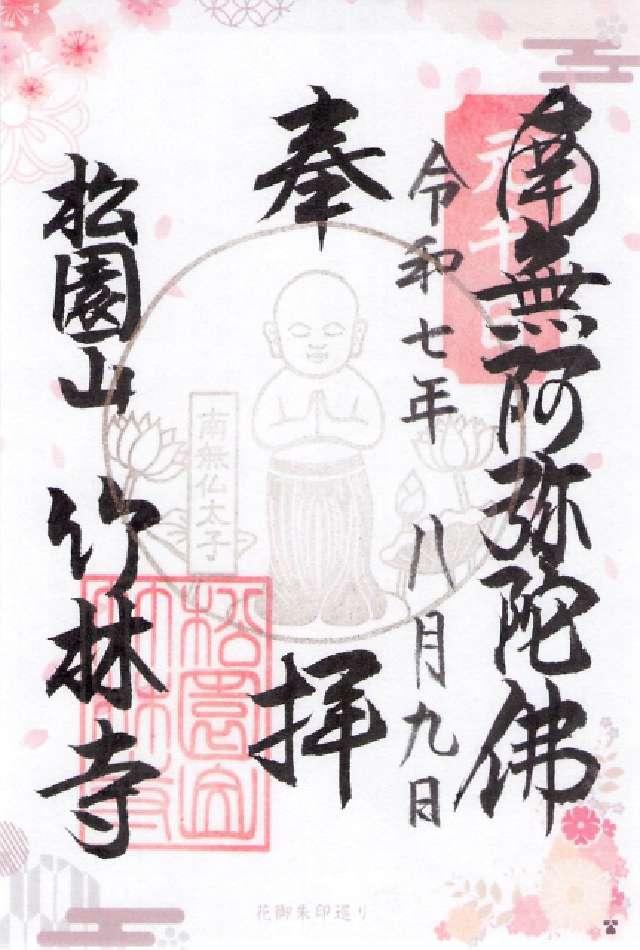 南無阿弥陀佛
令和七年八月九日
奉拝
南無仏太子
松園山竹林寺
松園山
竹林寺
花御朱印巡り